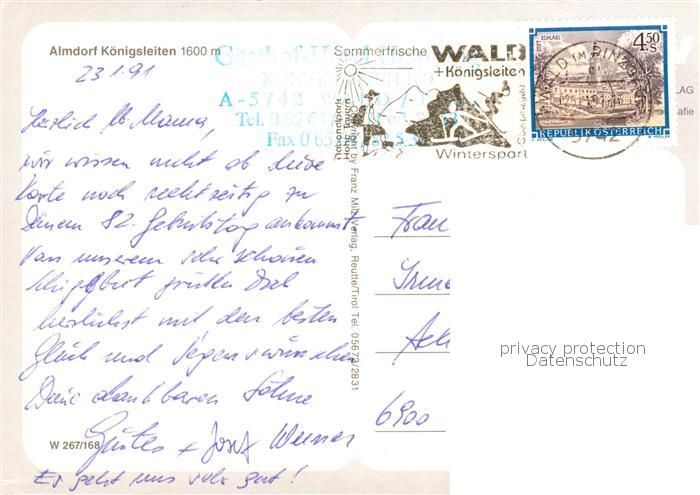 Almdorf Königsleiten 1600 m
23.1.91
A-5742 WALD
Tel. 0 65 64
Fax 0 65 64
Sommerfrische
WALD
+Königsleiten
Wintersport
Nationalpark
Hohe Tauern
Oberpinzgau
STIFT SCHLÄGL
4.50
S
REPUBLIK ÖSTERREICH
WALD IM PINZGAU
5742
LAG
afie
Copyright by Franz Milz Verlag, Reutte/Tirol Tel. 05672/2831
Herzlich lb. Mama,
wir wissen nicht ob diese
Karte noch rechtzeitig zu
Deinem 82. Geburtstag ankommt
Von unserem sehr schönen
Schigebiet grüßen Dich
herzlichst mit den besten
Glück und Segenswünschen
Deine dankbaren Söhne
+ Josef Werner
Es geht uns sehr gut!
Frau
6900
privacy protection
Datenschutz
W 267/168